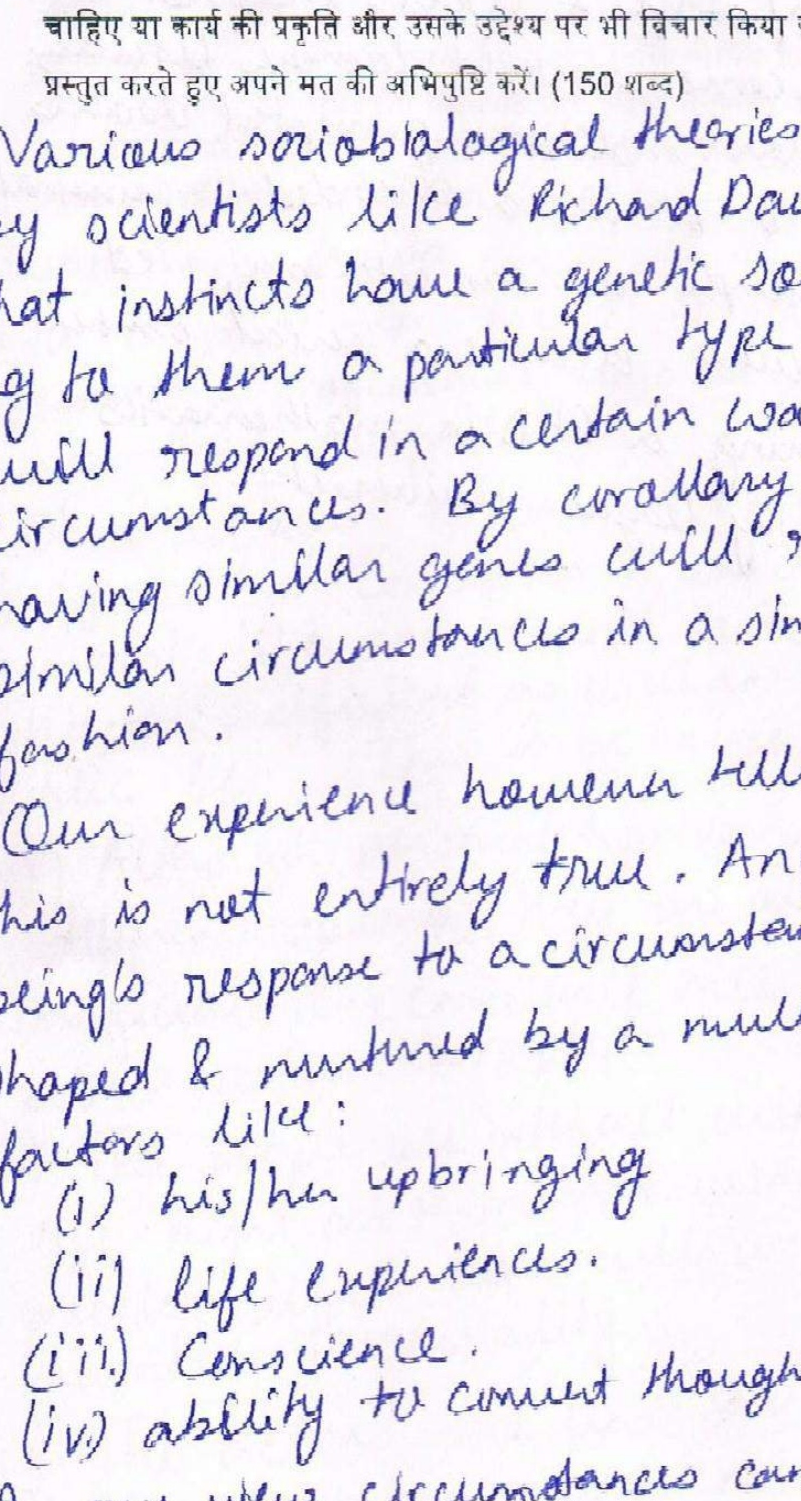 चाहिए या कार्य की प्रकृति और उसके उद्देश्य पर भी विचार किया
प्रस्तुत करते हुए अपने मत की अभिपुष्टि करें। (150 शब्द)
Various sociobialogical theories
y scientists like Richard Daw
hat instincts have a genetic so
g to them a particular type
will respond in a certain wa
ircumstances. By corollary
having similar genes will
similar circumstances in a sim
fashion.
Our experience however tell
his is not entirely true. An
being's response to a circumstan
shaped & nurtured by a mul
factors like:
(i) his/her upbringing
(ii) life experiences.
(iii.) Conscience.
(iv) ability to convert though
view circumstances can